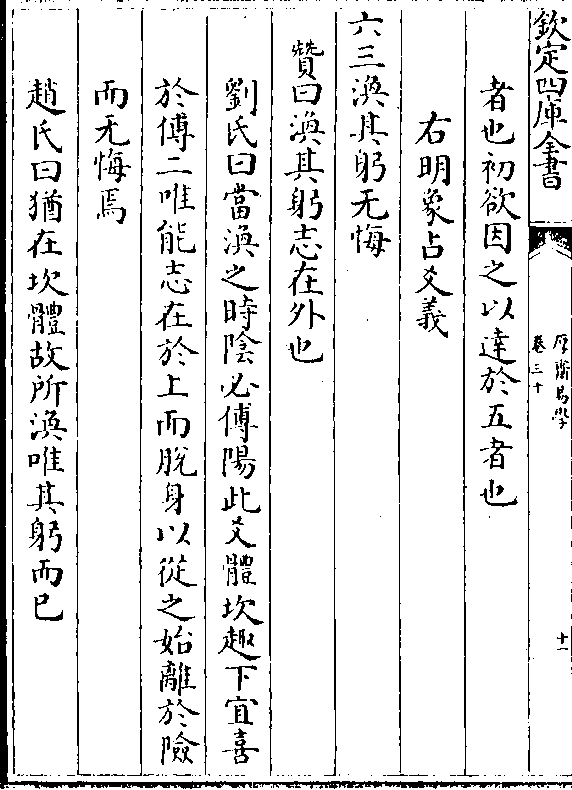 欽定四庫全書
厚齋易學
卷三十
十一
者也初欲因之以達於五者也
右明象占爻義
六三渙其躬无悔
贊曰渙其躬志在外也
劉氏曰當渙之時陰必傅陽此爻體坎趣下宜喜
於傅二唯能志在於上而脫身以從之始離於險
而无悔焉
趙氏曰猶在坎體故所渙唯其躬而已